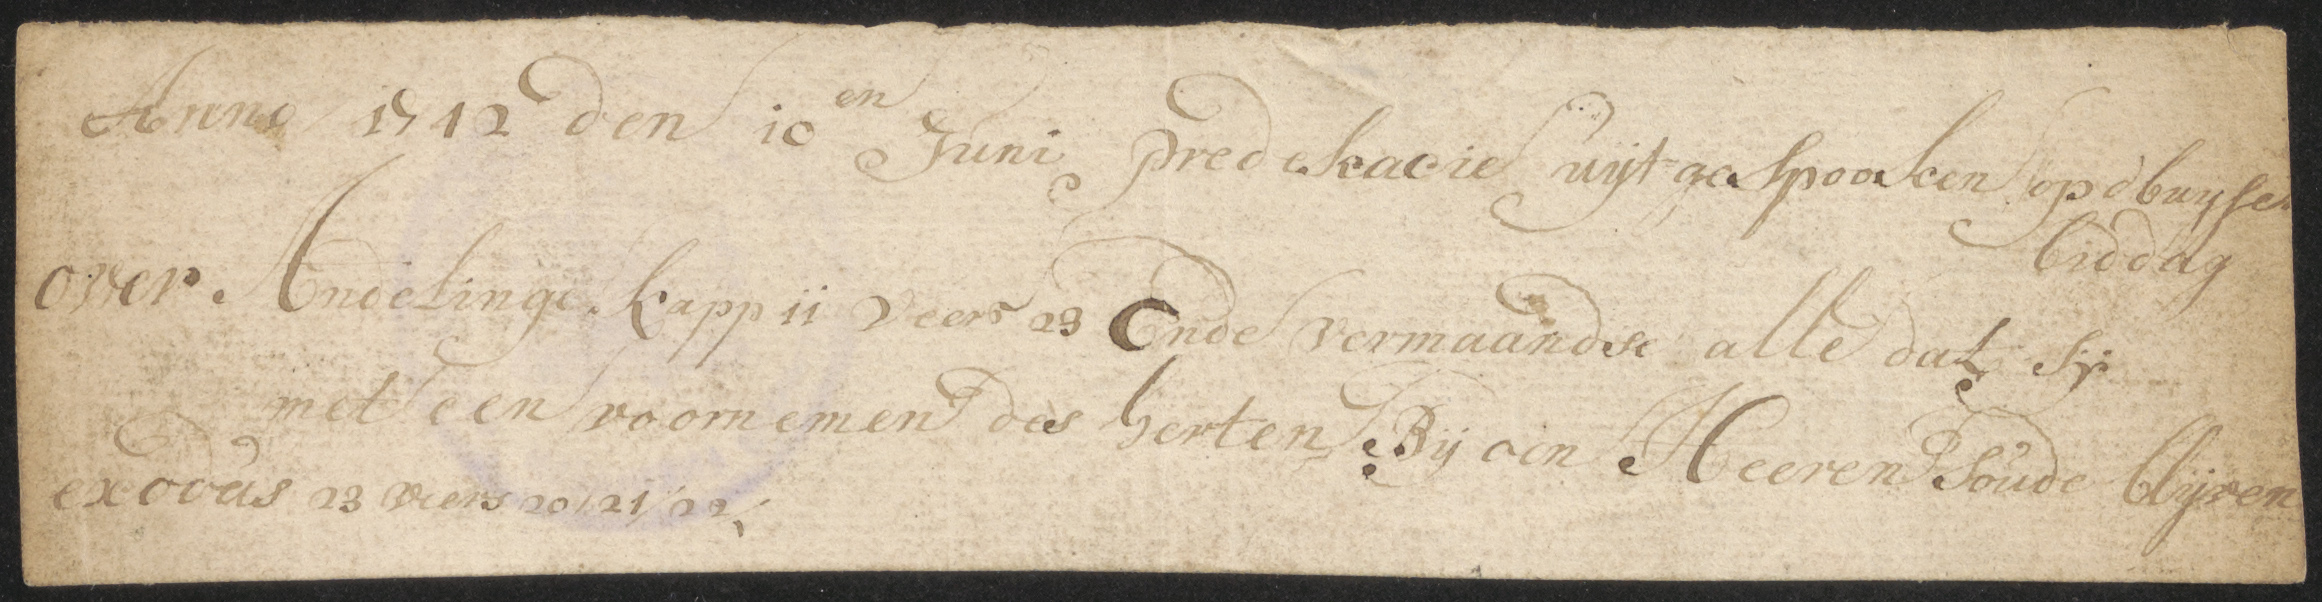 Anno 1712 den 10en Juni predekacie uijt gespooken op d buyse
biddag
over Andelinge kapp ii veers 23 Ende vermaande alle dat sij
met een voornemen des herten Bij den Heeren soude blijven
exodus 23 veers 20/21/22/